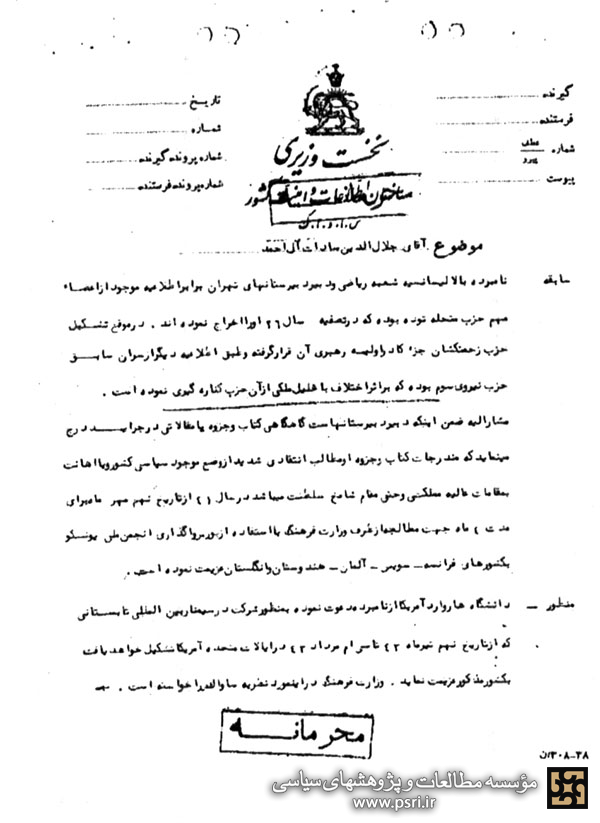 گیرنده
فرستنده
شماره عطف پیرو
پیوست
تاریخ
شماره
شماره پرونده گیرنده
شماره پرونده فرستنده
نخست وزیری
سازمان اطلاعات و امنیت کشور
س.ا.و.ا.ک
موضوع آقای جلال الدین سادات آل احمد
سابقه نامبرده بالا لیسانسیه شعبه ریاضی و دبیر دبیرستانهای تهران برابر اطلاعیه موجود از اعضاء
مهم حزب منحله توده بوده که در تصفیه سال ۲۶ او را اخراج نموده اند . در موقع تشکیل
حزب زحمتکشان جزء کادر اولیه رهبری آن قرار گرفته و طبق اطلاعیه دیگر از سران سابق
حزب نیروی سوم بوده که بر اثر اختلاف با خلیل ملکی از آن حزب کناره گیری نموده است .
مشارالیه ضمن اینکه دبیر دبیرستانهاست گاهگاهی کتاب و جزوه یا مقالاتی در جراید درج
مینماید که مندرجات کتاب و جزوه او مطالب انتقادی شدید از وضع موجود سیاسی کشور و یا اهانت
بمقامات عالیه مملکتی و حتی مقام شامخ سلطنت میباشد در سال ۴۱ از تاریخ نهم مهر ماه برای
مدت ۴ ماه جهت مطالعه از طرف وزارت فرهنگ با استفاده از بورس واگذاری انجمن ملی یونسکو
بکشورهای فرانسه - سویس - آلمان - هندوستان و انگلستان عزیمت نموده است .
منظور - دانشگاه هاروارد آمریکا از نامبرده دعوت نموده بمنظور شرکت در سمینار بین المللی تابستانی
که از تاریخ نهم تیرماه ۴۳ تا سی ام مرداد ۴۳ در ایالات متحده آمریکا تشکیل خواهد یافت
بکشور مذکور عزیمت نماید . وزارت فرهنگ در اینمورد نظریه ساواک را خواسته است .
محرمانه
۲۸-۳۰۸/ن
مؤسسه مطالعات و پژوهشهای سیاسی
www.psri.ir